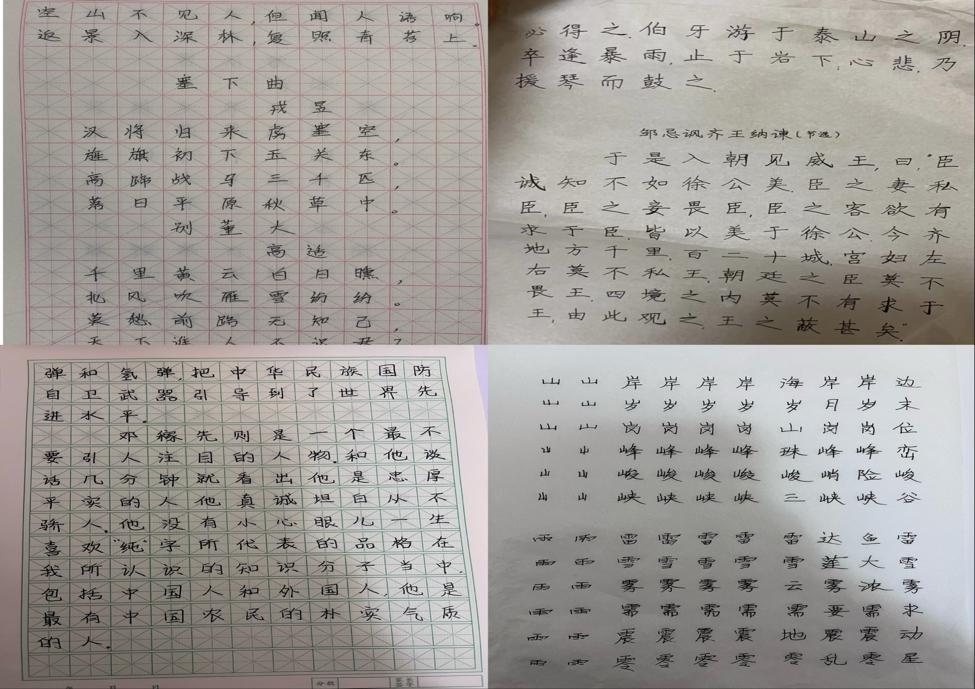 空山不见人,但闻人语响。
返景入深林,复照青苔上。
塞下曲
戎昱
汉将归来虏塞空,
旌旗初下玉关东。
高蹄战马三千匹,
落日平原秋草中。
别董大
高适
千里黄云白日曛,
北风吹雁雪纷纷。
莫愁前路无知己,
天下谁人不识君?
必得之.伯牙游于泰山之阴.
卒逢暴雨,止于岩下,心悲,乃
援琴而鼓之.
邹忌讽齐王纳谏(节选)
于是入朝见威王,曰"臣
诚知不如徐公美.臣之妻私
臣,臣之妾畏臣,臣之客欲有
求于臣,皆以美于徐公.今齐
地方千里,百二十城,宫妇左
右莫不私王,朝廷之臣莫不
畏王,四境之内莫不有求于
王,由此观之,王之蔽甚矣."
弹和氢弹,把中华民族国防
自卫武器引导到了世界先
进水平.
邓稼先则是一个最不
要引人注目的人物.和他谈
话几分钟就看出他是忠厚
平实的人他真诚坦白从不
骄人.他没有小心眼儿一生
喜欢"纯"字所代表的品格在
我所认识的知识分子当中,
包括中国人和外国人,他是
最有中国农民的朴实气质
的人.
年 月 日 分数
山山岸岸岸岸海岸岸边
山山岁岁岁岁岁月岁末
山山岗岗岗岗山岗岗位
山山峰峰峰峰珠峰峰峦
山山峻峻峻峻峻峭险峻
山山峡峡峡峡三峡峡谷
雨雨雷雷雷雷雷达鱼雷
雨雨雪雪雪雪雪莲大雪
雨雨雾雾雾雾云雾浓雾
雨雨需需需需需要需求
雨雨震震震震地震震动
雨雨零零零零零乱零星